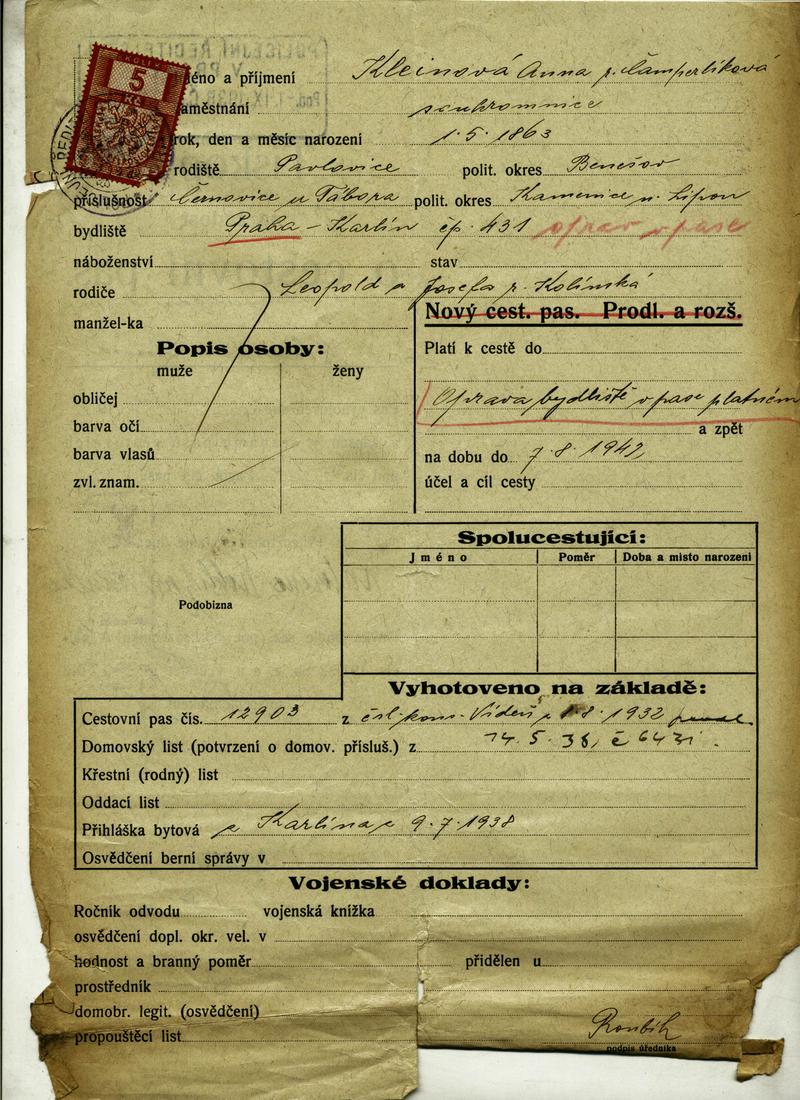 KOLEK
5
Kč
jméno a příjmení Kleinová Anna r. Čamperlíková
zaměstnání soukromnice
rok, den a měsíc narození 1. 5. 1863
rodiště Pavlovice polit. okres Benešov
příslušnost Černovice u Tábora polit. okres Kamenice n. Lipou
bydliště Praha – Karlín čp. 431 oprav v pase
náboženství stav
rodiče Leopold a Josefa r. Kolínská
manžel-ka
Nový cest. pas. Prodl. a rozš.
Popis osoby:
muže ženy
obličej
barva očí
barva vlasů
zvl. znam.
Platí k cestě do
Oprava bydliště v pase platném
a zpět
na dobu do 7. 8. 1942,
účel a cíl cesty
Podobizna
Spolucestující:
Jméno Poměr Doba a místo narození
Vyhotoveno na základě:
Cestovní pas čís. 12903 z čsl. kons. Vídeň 1. 8. 1932
Domovský list (potvrzení o domov. přísluš.) z 14. 5. 38, č 6431.
Křestní (rodný) list
Oddací list
Přihláška bytová z Karlína z 9. 7. 1938
Osvědčení berní správy v
Vojenské doklady:
Ročník odvodu vojenská knížka
osvědčení dopl. okr. vel. v
hodnost a branný poměr přidělen u
prostředník
domobr. legit. (osvědčení)
propouštěcí list
Roubík
podpis úředníka